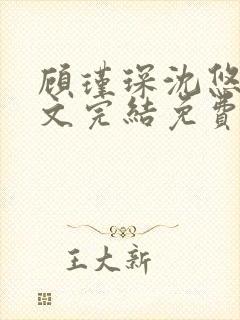 顧瑾琛沈悠
文完結免費
王大新